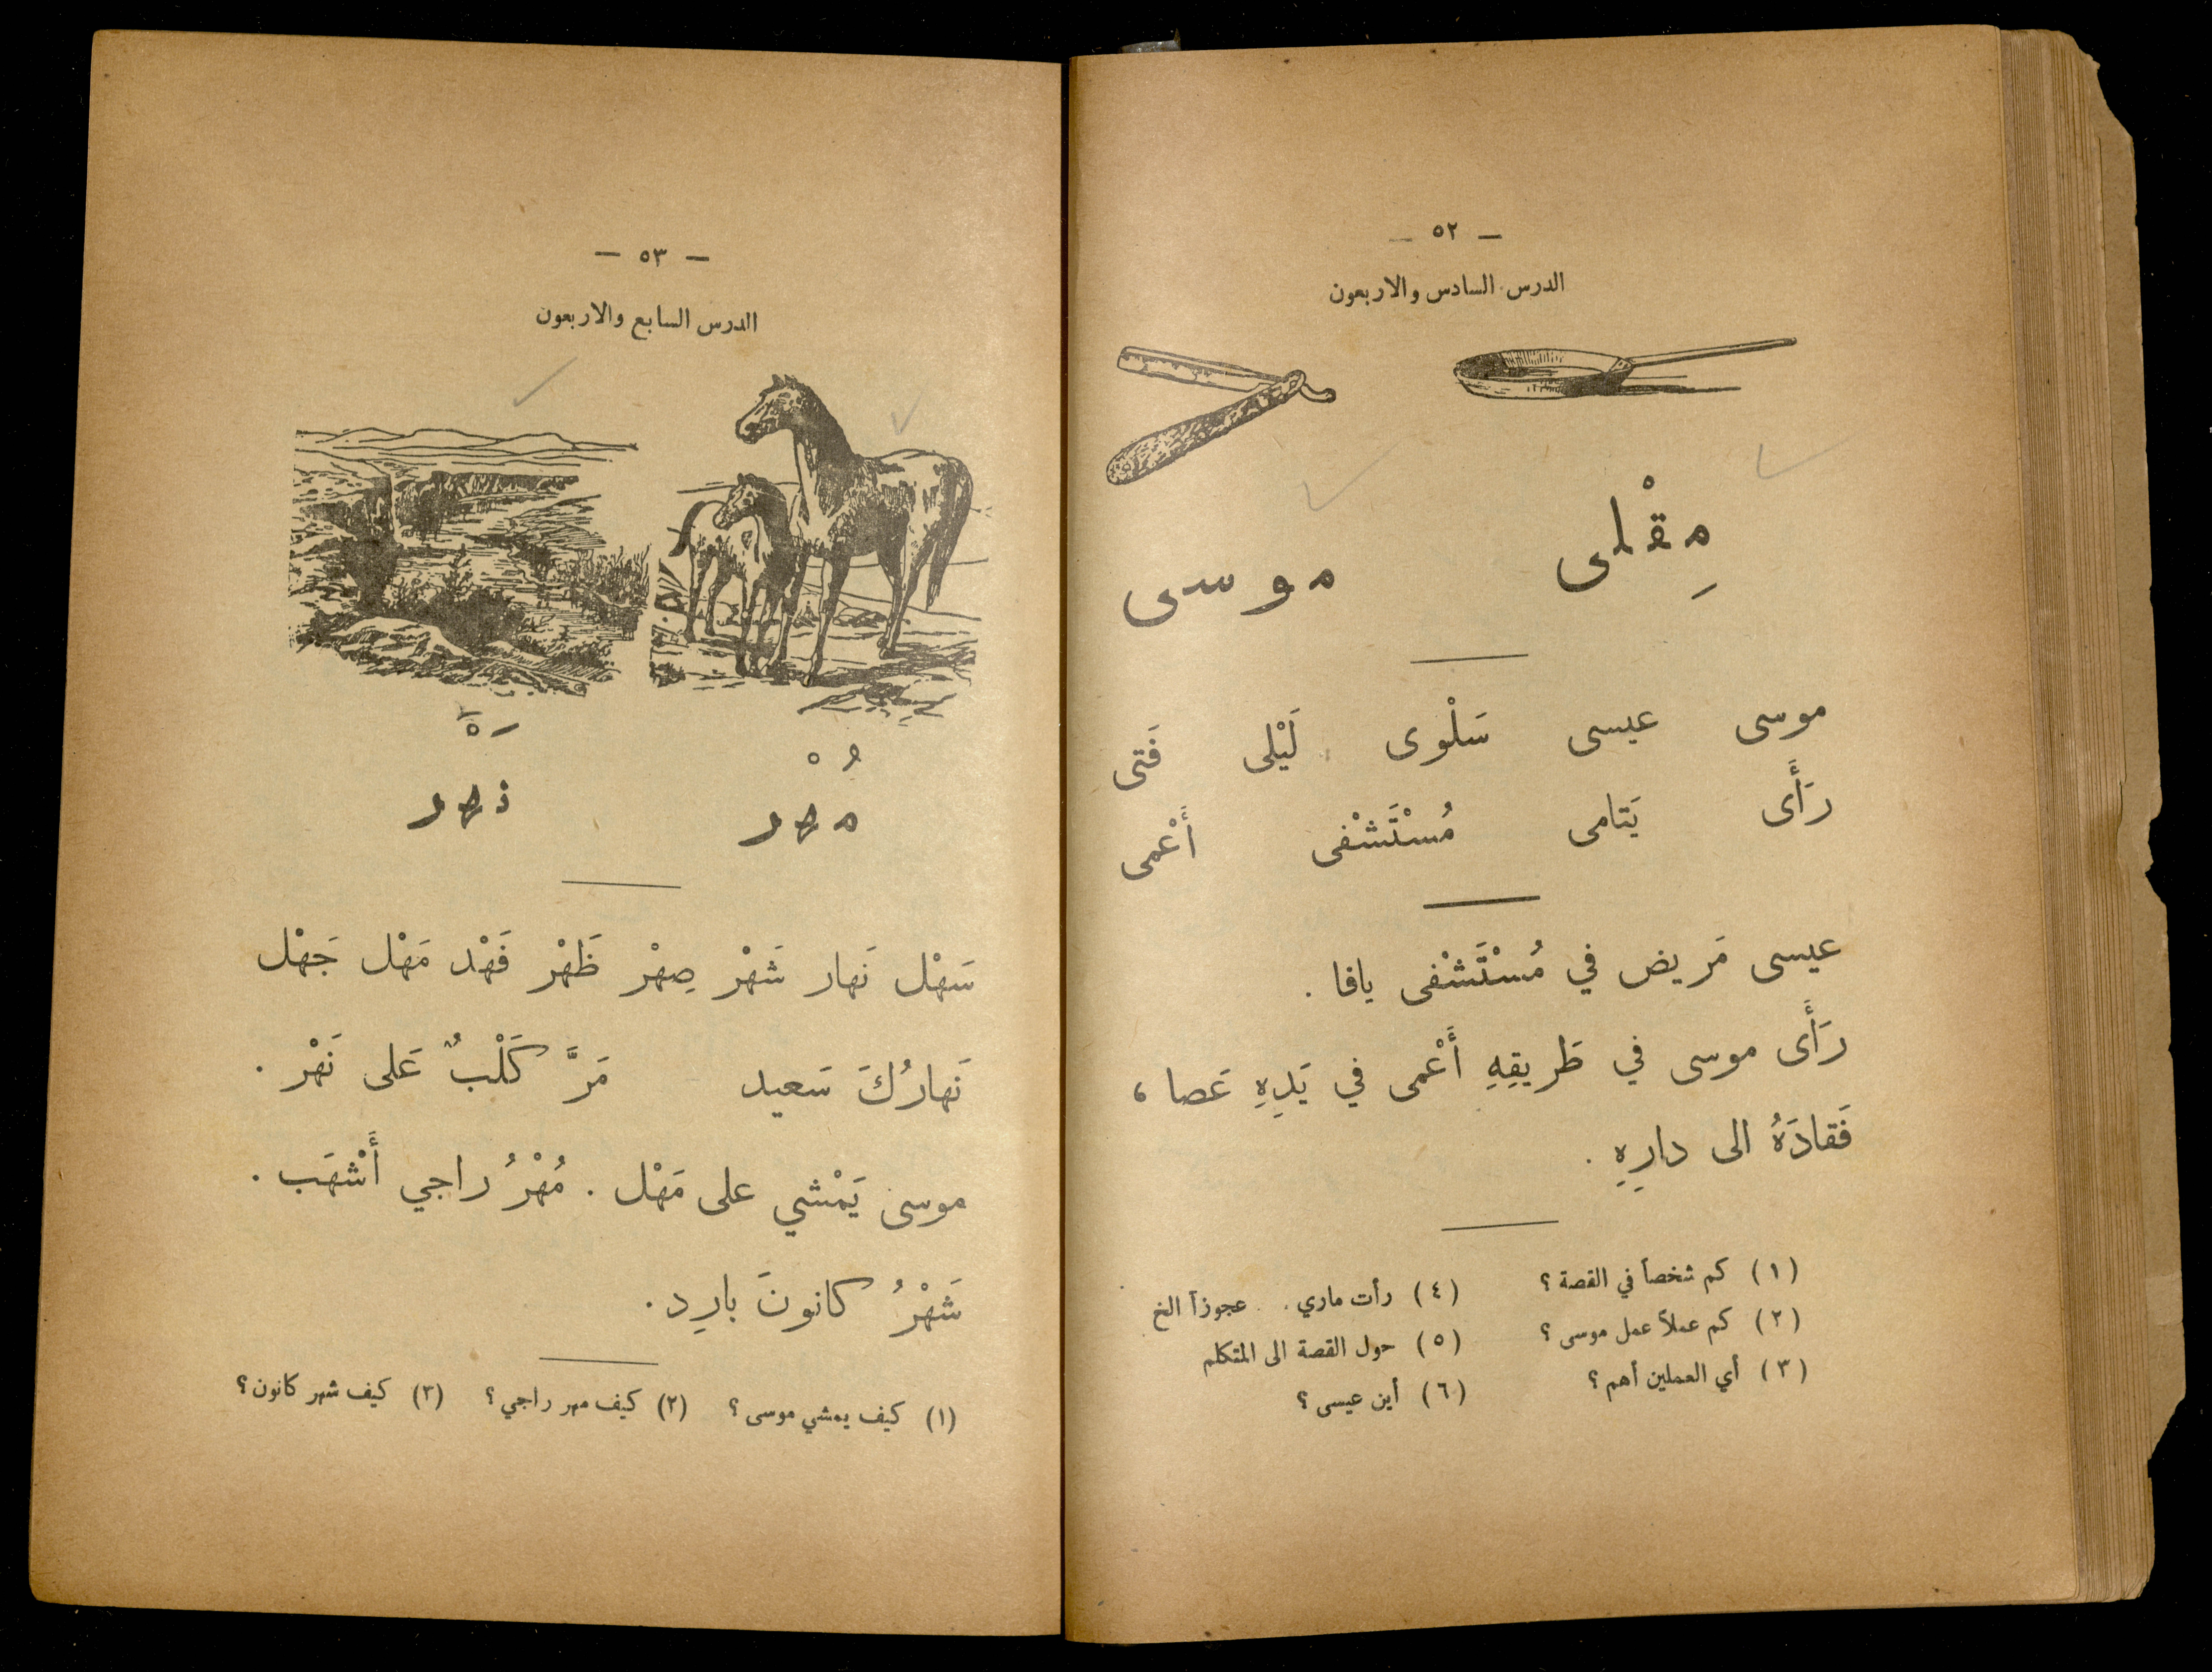 — ٥٢ —
الدرس السادس والاربعون
مِقْلى
موسى
موسى عيسى سَلْوى لَيْلى فَتى
رَأَى يَتامى مُسْتَشْفى أَعْمى
عيسى مَريض في مُسْتَشْفى يافا .
رَأَى موسى في طَريقِهِ أَعْمى في يَدِهِ عَصا ،
فَقادَهُ الى دارِهِ .
(١) كم شخصاً في القصة ؟
(٢) كم عملاً عمل موسى ؟
(٣) أي العملين أهم ؟
(٤) رأت ماري . . عجوزاً الخ
(٥) حول القصة الى المتكلم
(٦) أين عيسى ؟
— ٥٣ —
الدرس السابع والاربعون
مُهْر
نهر
سَهْل نَهار شَهْر صِهْر ظَهْر فَهْد مَهْل جَهْل
نَهارُكَ سَعيد مَرَّ كَلْبٌ عَلى نَهْر .
موسى يَمْشي على مَهْل . مُهْرُ راجي أَشْهَب .
شَهْرُ كانونَ بارِد .
(١) كيف يمشي موسى ؟ (٢) كيف مهر راجي ؟ (٣) كيف شهر كانون ؟